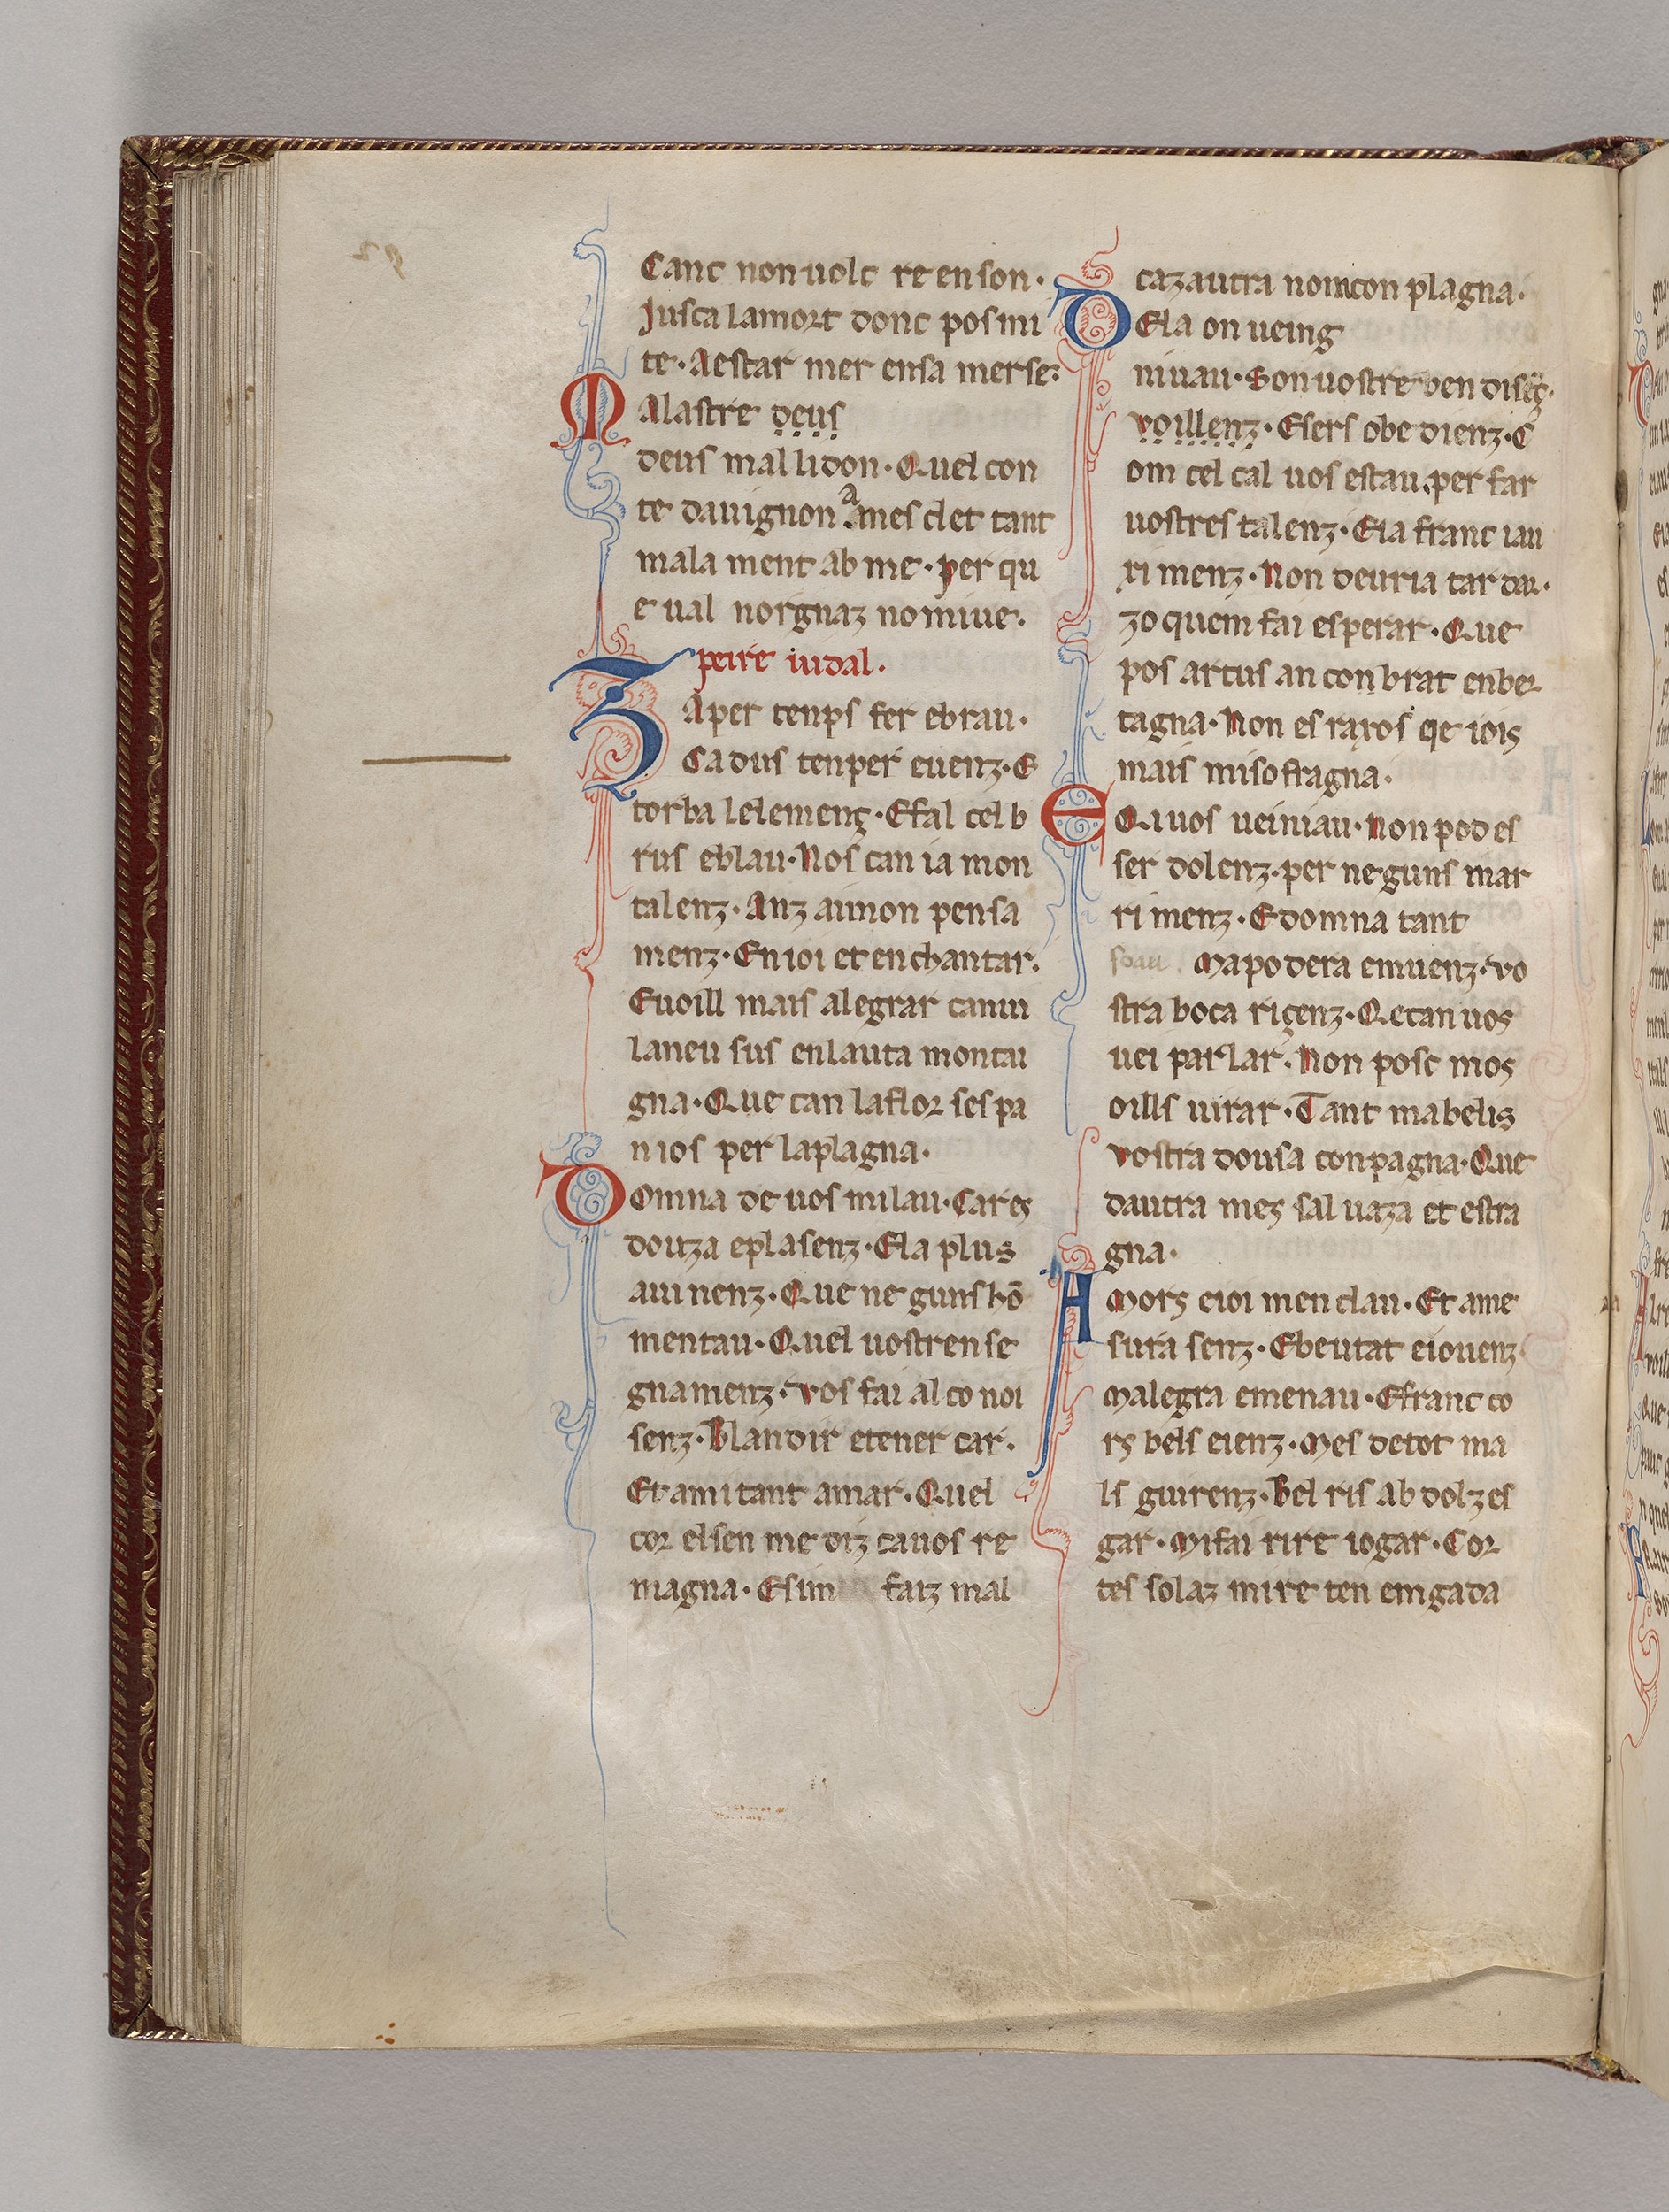 Canc non uolc re en son·
Jusca la mort donc pos mi
te· A estar mer en sa merse:
Malastre deus
deus mal li don· Quel con
te dauignon a mes clet tant
mala ment ab me· per qu
e ual norgnaz no miue·
peire uidal·
ZA per tenps fer ebrau·
Cadus tenper euenz· E
torba lelemenç· E fal cel b
rus eblau· Nos can ia mon
talenz· Anz ai mon pensa
menz· En ioi et en chantar·
E uoill mais alegrar can ui
la neu sus en lauta montu
gna· Que can la flor ses pa
n ios per la plagna·
Domna de uos mi lau· Cares
douza eplasenz· E la plus
aui nenz· Que ne guns hō
mentau· Quel uostren se
gnamenz· vos fai al co noi
senz· Blandir etener car·
Et ami tant amar· Quel
cor el sen me diz cauos re
magna· E sim faiz mal
caz autra nomcon plagna·
DEla on ueing
niuau· Son uostre ben disç·
voillenz· E sers obe dienz· C
om cel cal uos estau· per far
uostres talenz· E la franc iau
ximenz· Non deuria tar dar·
zo quem fai esperar· Que
pos artus an conbrat en be
tagna· Non es raxos qe iois
mais mi sofragna·
E Qui uos uei niau· Non pod es
ser dolenz· per neguns mar
ri menz· E domna tant
soau· Ma podera emuenz· vo
stra boca rizenz· Qe can uos
uei parlar· Non posc mos
oills uirar· Tant ma belis
vostra dousa conpagna· Que
dautra mes sal uaza et estra
gna·
A Mors eioi men clau· Et ame
sura senz· E beutat eiouenz
Malegra emenau· E franc co
rs bels eienz· Mes de tot ma
ls guirenz· Bel ris ab dolz es
gar· Mi fai rire iogar· Cor
tes solaz mire ten em gada